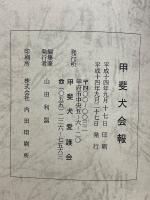 甲斐犬会報
平成十四年九月十七日 印刷
平成十四年九月二十七日 発行
発行所
甲府市中央五-六-二〇
甲斐犬愛護会
編集兼
発行者 山田利器
印刷所 株式会社 内田印刷所